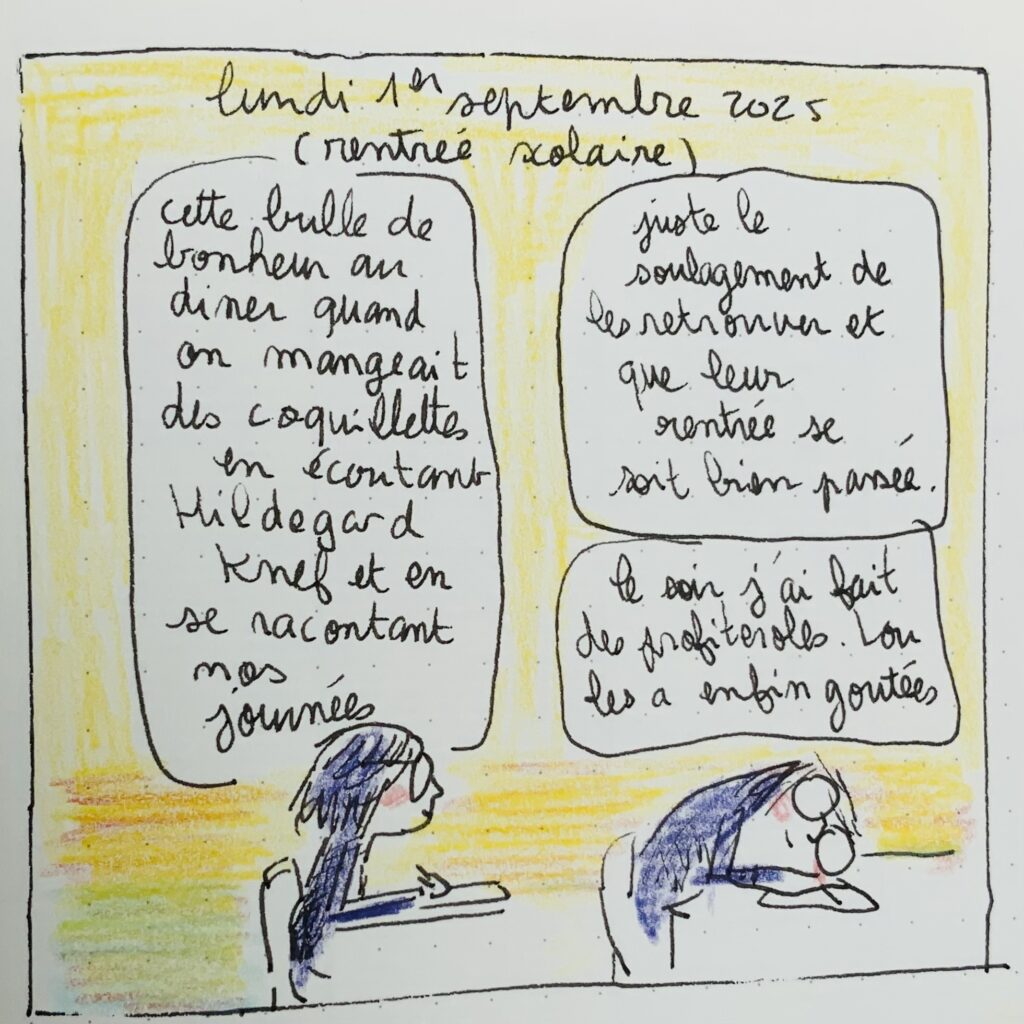 lundi 1er septembre 2025
(rentrée scolaire)
cette bulle de
bonheur au
diner quand
on mangeait
des coquillettes
en écoutant
Hildegard
Knef et en
se racontant
nos
journées
juste le
soulagement de
les retrouver et
que leur
rentrée se
soit bien passée.
le soir j'ai fait
des profiteroles. Lou
les a enfin goutées